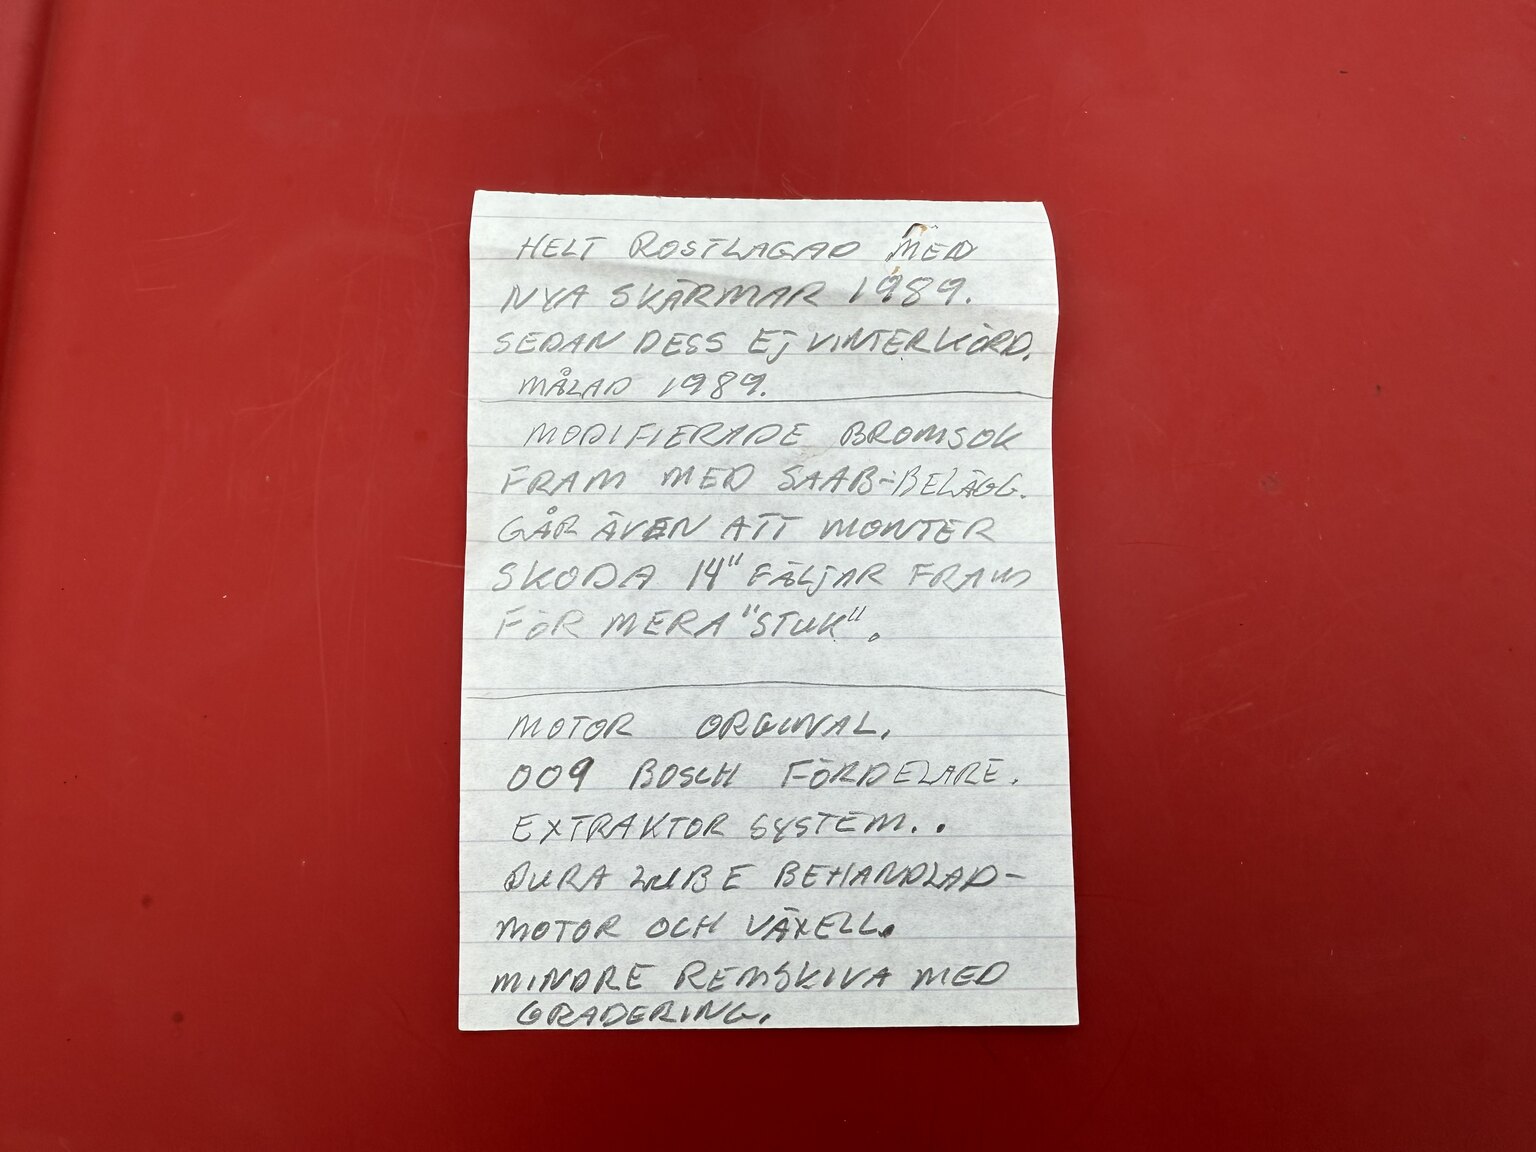 HELT ROSTLAGAD MED
NYA SKÄRMAR 1989.
SEDAN DESS EJ VINTERKÖRD.
MÅLAD 1989.
MODIFIERADE BROMSOK
FRAM MED SAAB-BELÄGG.
GÅR ÄVEN ATT MONTER
SKODA 14" FÄLJAR FRAM
FÖR MERA "STUK".
MOTOR ORGINAL.
009 BOSCH FÖRDELARE.
EXTRAKTOR SYSTEM..
DURA LUBE BEHANDLAD-
MOTOR OCH VÄXELL.
MINDRE REMSKIVA MED
GRADERING.